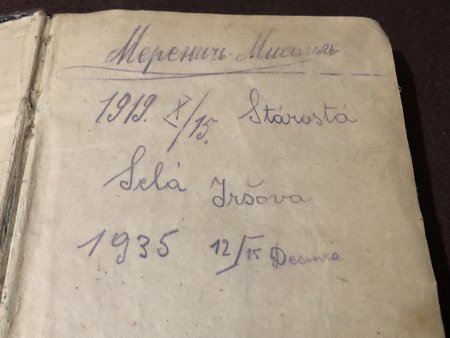 Мереничь Михаиль
1919. X/15. Stárostá
Selá Iršova
1935 12/15